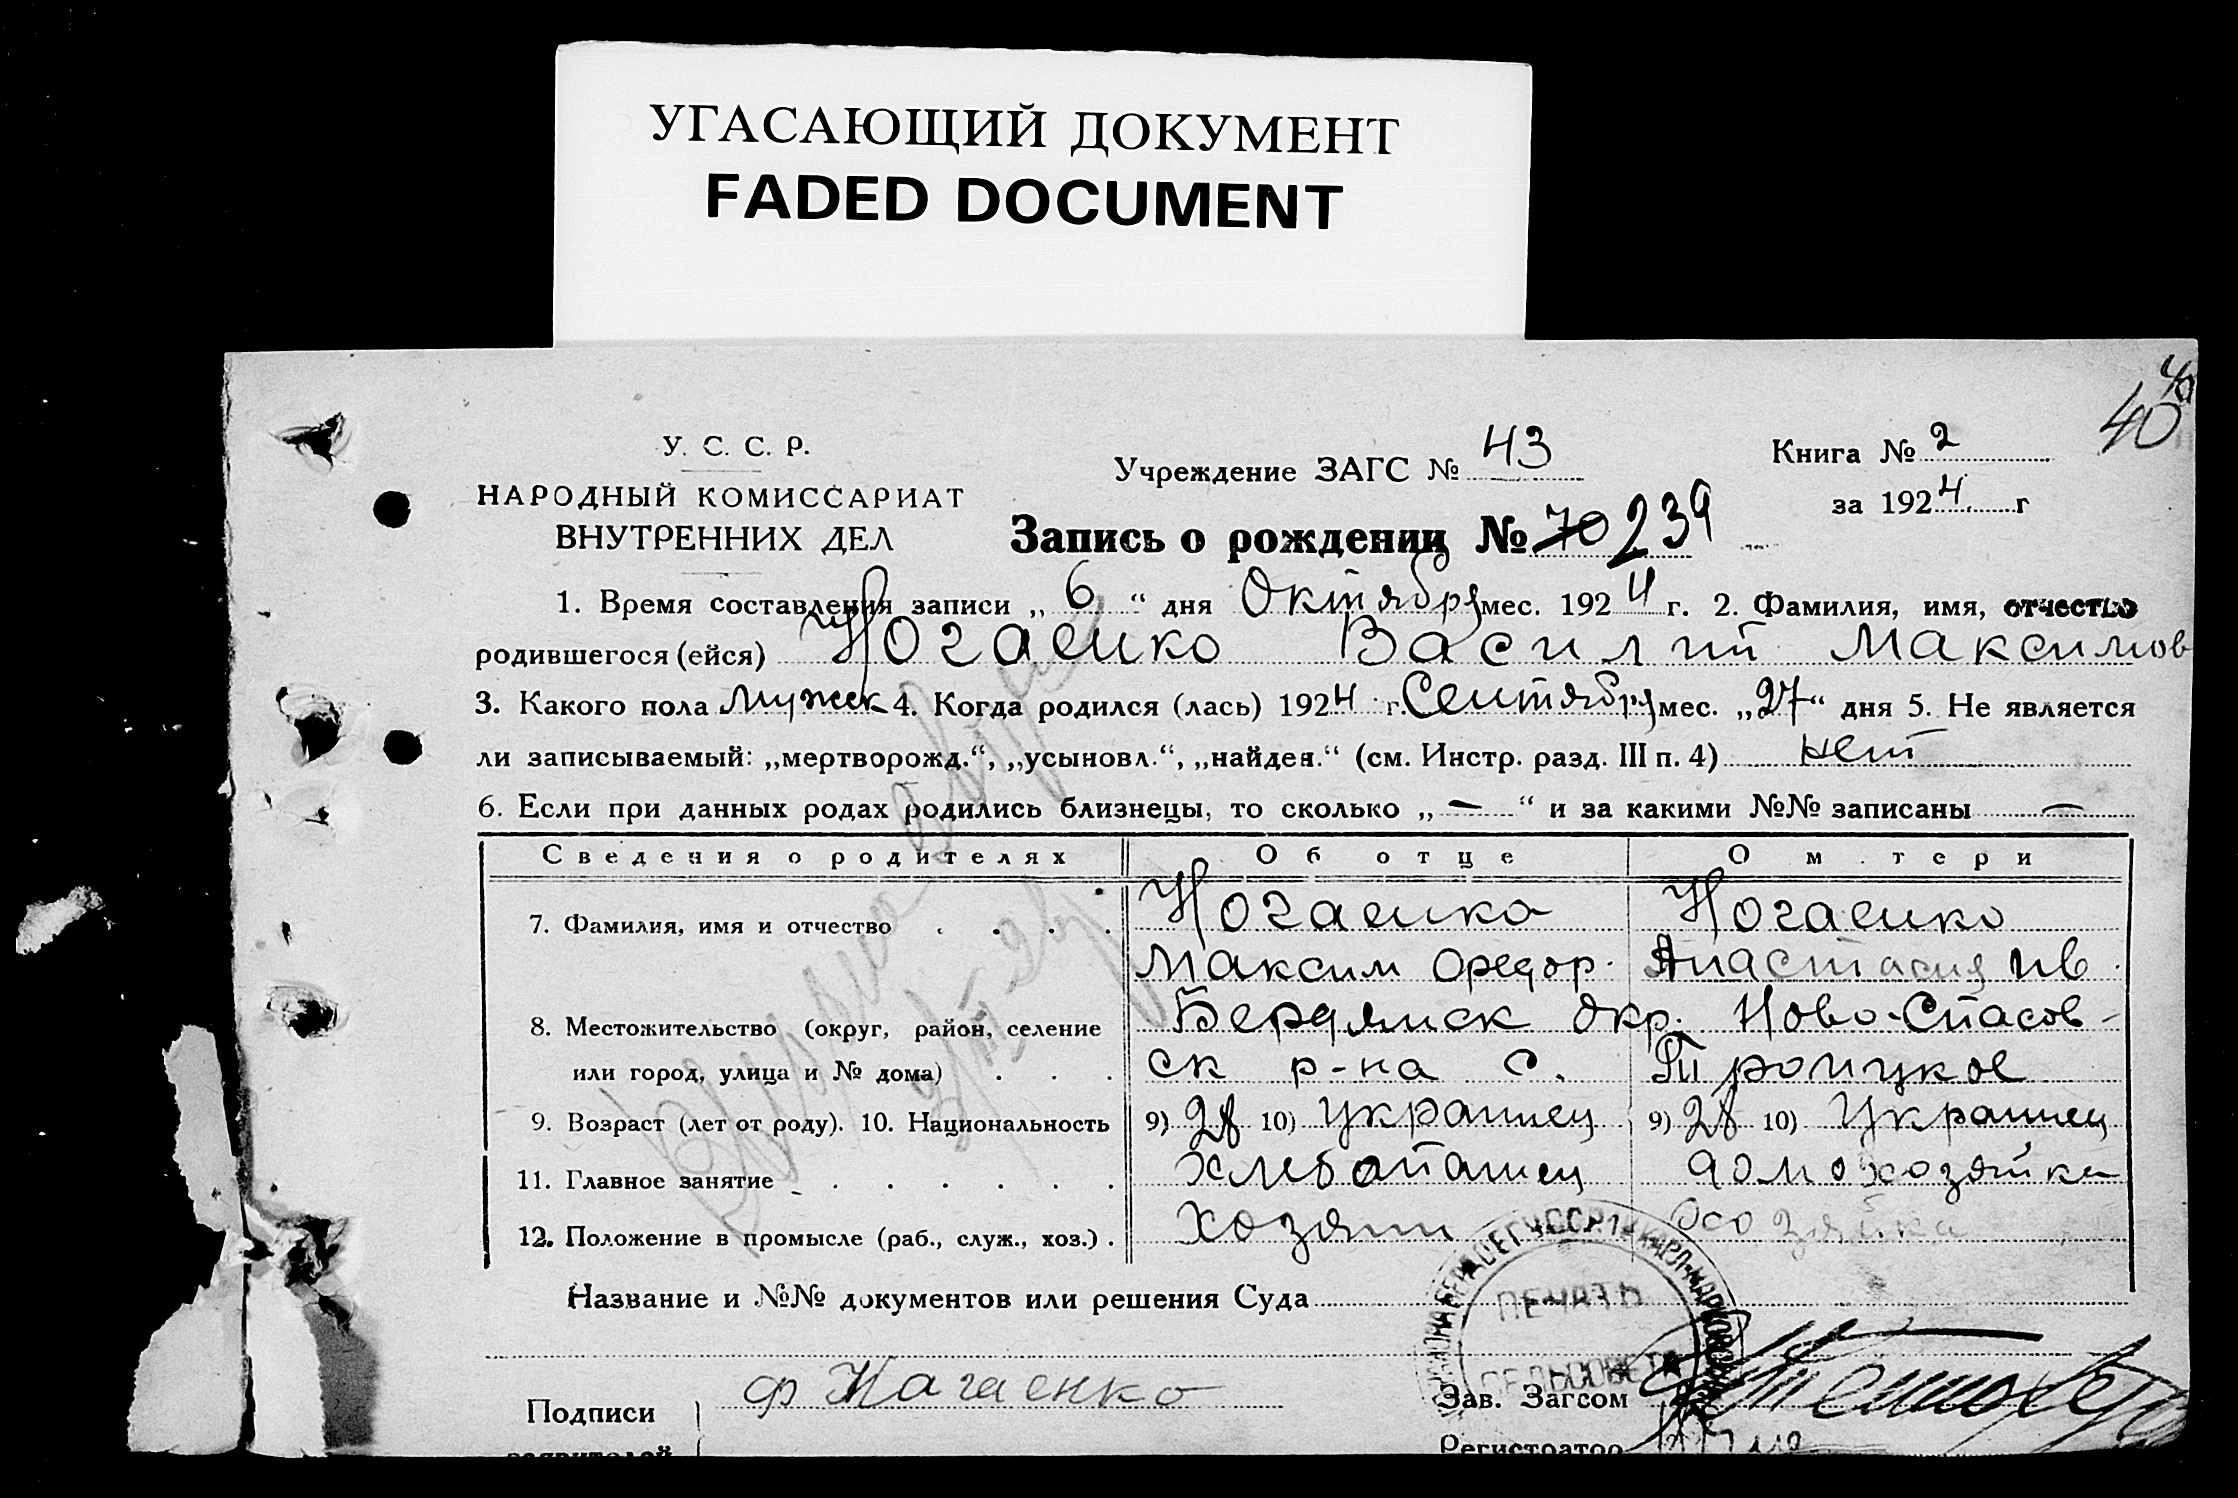 УГАСАЮЩИЙ ДОКУМЕНТ
FADED DOCUMENT
40
У. С. С. Р.
Учреждение ЗАГС № 43
Книга № 2
НАРОДНЫЙ КОМИССАРИАТ
за 1924 г
ВНУТРЕННИХ ДЕЛ
Запись о рождении № 70 239
1. Время составления записи „ 6 “ дня Октября мес. 1924 г. 2. Фамилия, имя, отчество
родившегося (ейся) Ногаенко Василий Максимов
3. Какого пола Мужск 4. Когда родился (лась) 1924 г. Сентября мес. „27“ дня 5. Не является
ли записываемый: „мертворожд.“, „усыновл.“, „найден.“ (см. Инстр. разд. III п. 4) нет
6. Если при данных родах родились близнецы, то сколько „ — “ и за какими №№ записаны —
Сведения о родителях Об отце О м.тери
7. Фамилия, имя и отчество Ногаенко Ногаенко
Максим Федор. Анастасия Ив.
8. Местожительство (округ, район, селение Бердянск окр. Ново-Спасов-
или город, улица и № дома) ск р-на с. Троицкое
9. Возраст (лет от роду). 10. Национальность 9) 28 10) Украинец 9) 28 10) Украинец
11. Главное занятие Хлебопашец домохозяйка
12. Положение в промысле (раб., служ., хоз.) Хозяин Хозяйка
Название и №№ документов или решения Суда
ПЕЧАТЬ
СЕЛЬСОВЕТА
Подписи Ф Нагаенко Зав. Загсом
заявителей Регистратор